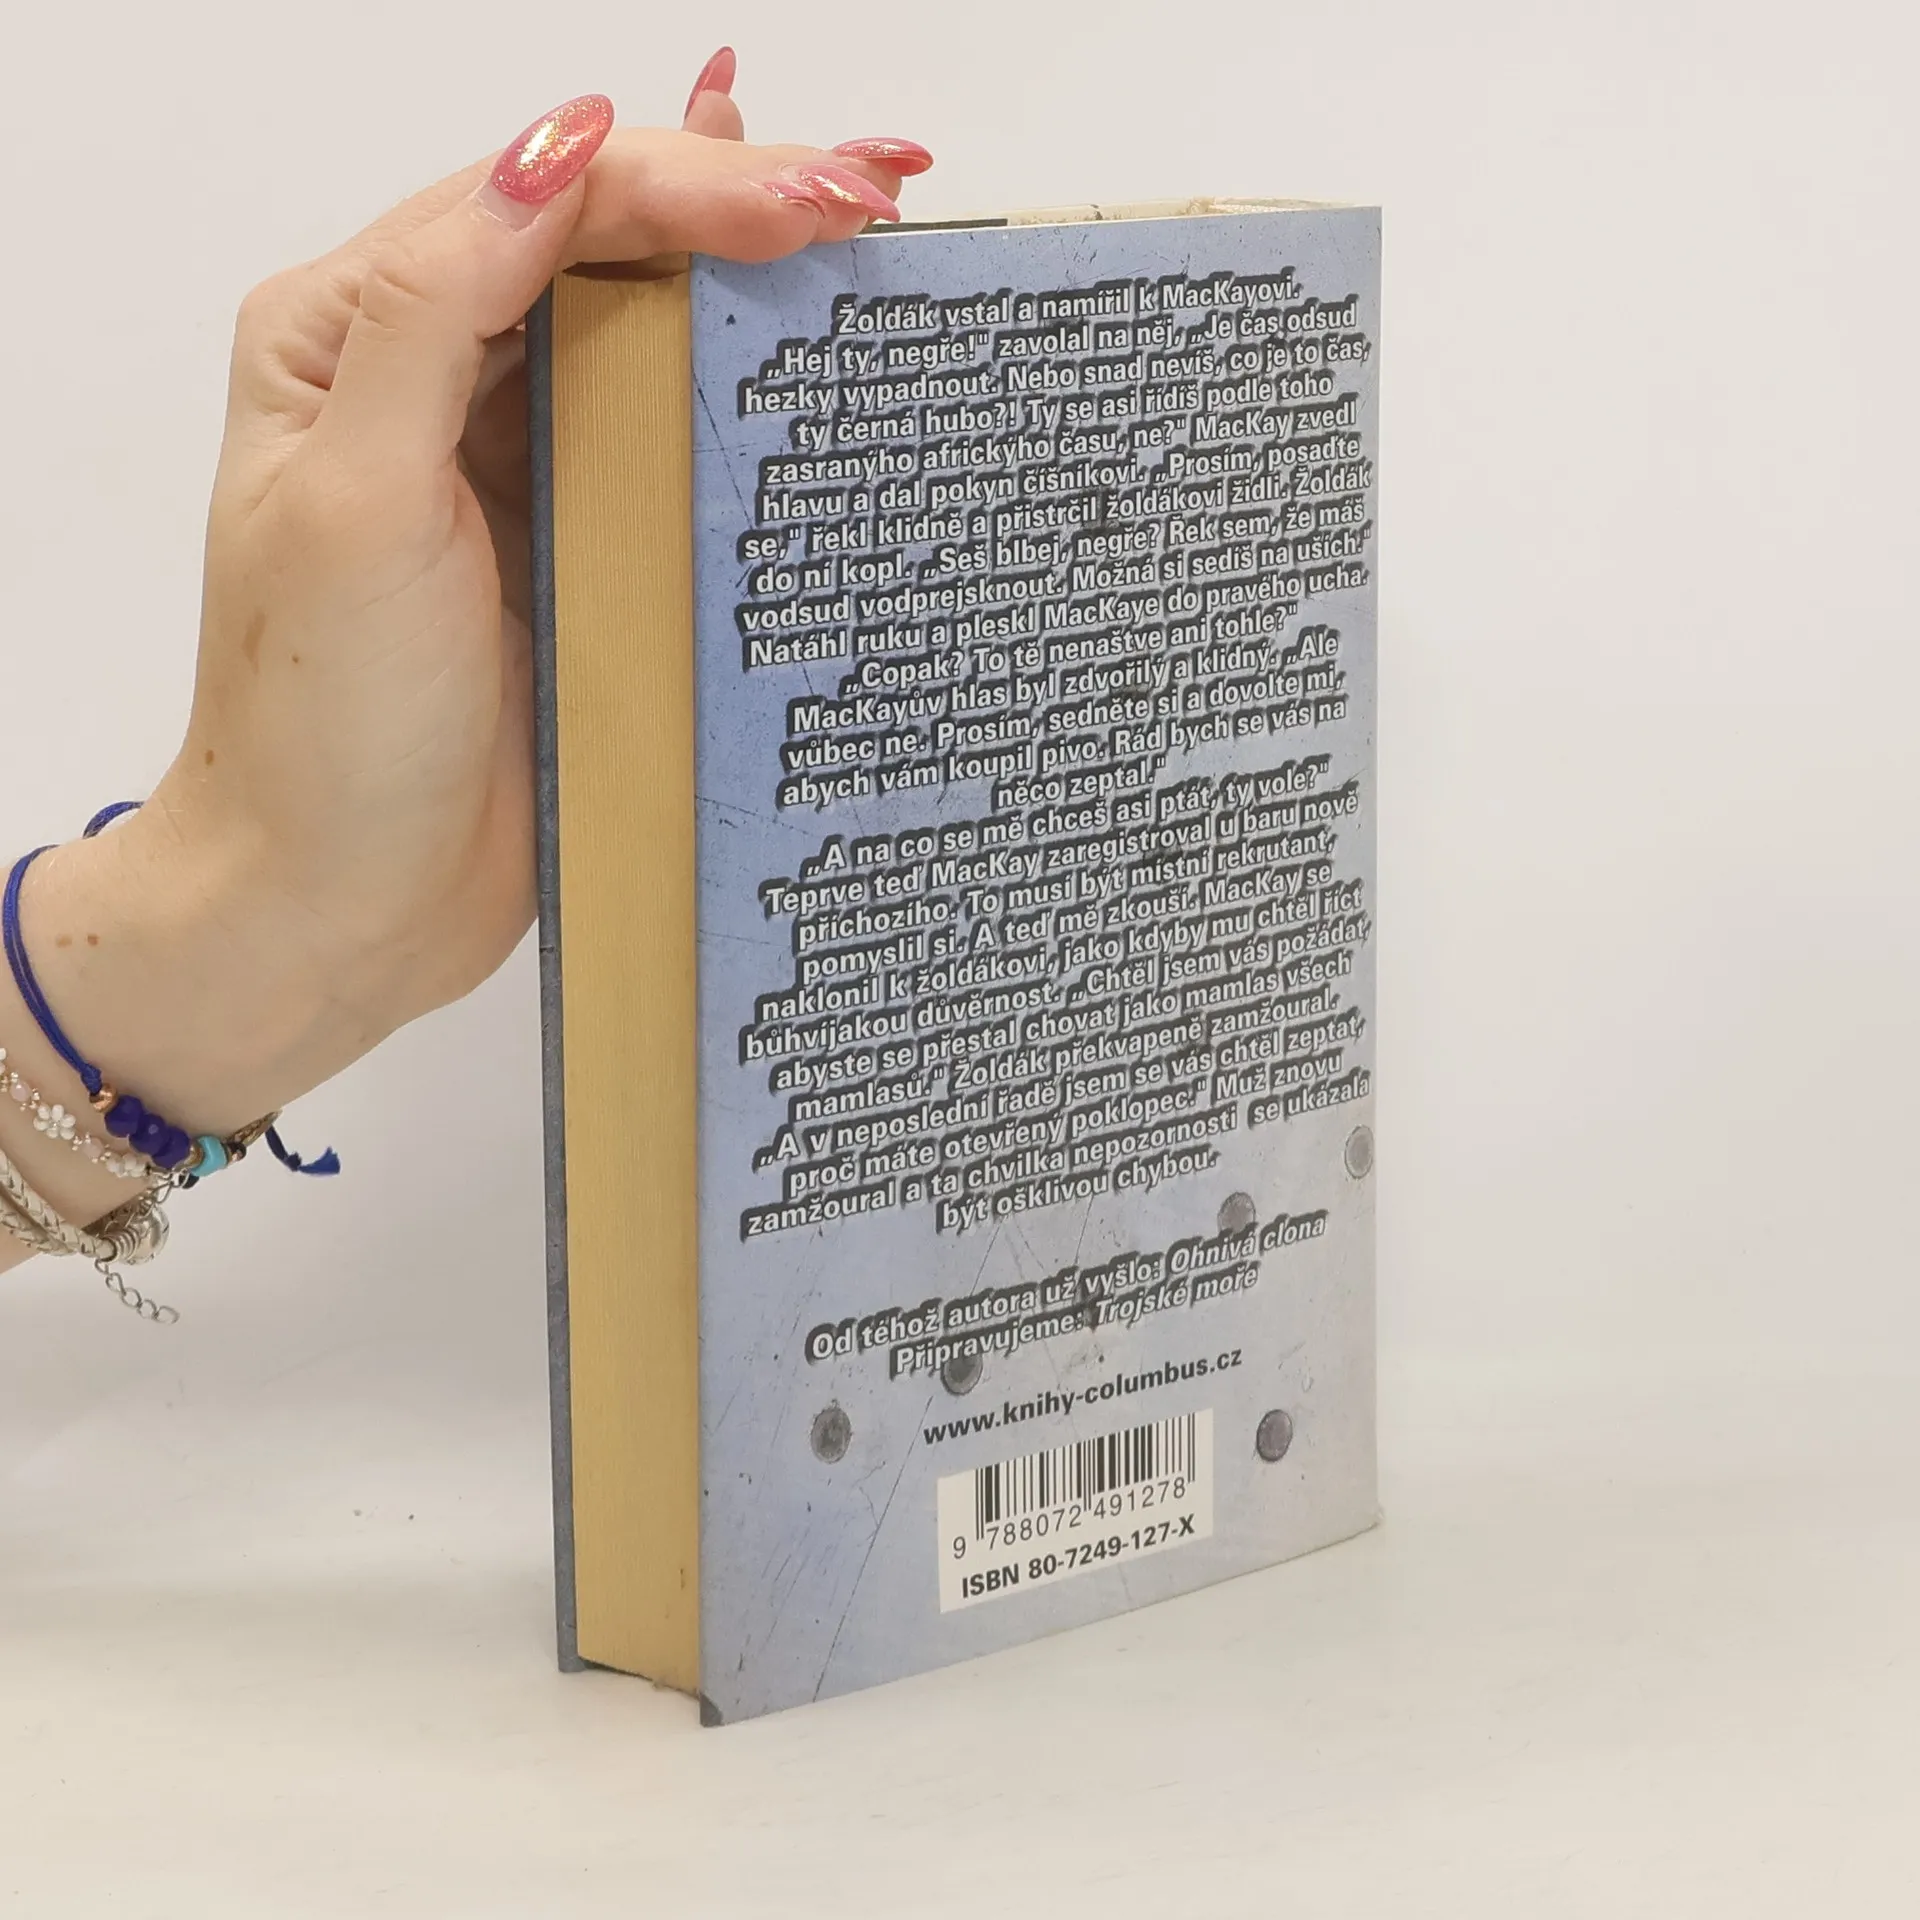 Žoldák vstal a namířil k MacKayovi.
„Hej ty, negře!" zavolal na něj, „Je čas odsud
hezky vypadnout. Nebo snad nevíš, co je to čas,
ty černá hubo?! Ty se asi řídíš podle toho
zasranýho africkýho času, ne?" MacKay zvedl
hlavu a dal pokyn číšníkovi. „Prosím, posaďte
se," řekl klidně a přistrčil žoldákovi židli. Žoldák
do ní kopl. „Seš blbej, negře? Řek sem, že máš
vodsud vodprejsknout. Možná si sedíš na uších."
Natáhl ruku a pleskl MacKaye do pravého ucha.
„Copak? To tě nenaštve ani tohle?"
MacKayův hlas byl zdvořilý a klidný. „Ale
vůbec ne. Prosím, sedněte si a dovolte mi,
abych vám koupil pivo. Rád bych se vás na
něco zeptal."
„A na co se mě chceš asi ptát, ty vole?"
Teprve teď MacKay zaregistroval u baru nově
příchozího. To musí být místní rekrutant,
pomyslil si. A teď mě zkouší. MacKay se
naklonil k žoldákovi, jako kdyby mu chtěl říct
bůhvíjakou důvěrnost. „Chtěl jsem vás požádat,
abyste se přestal chovat jako mamlas všech
mamlasů." Žoldák překvapeně zamžoural.
„A v neposlední řadě jsem se vás chtěl zeptat,
proč máte otevřený poklopec." Muž znovu
zamžoural a ta chvilka nepozornosti se ukázala
být ošklivou chybou.
Od téhož autora už vyšlo: Ohnivá clona
Připravujeme: Trojské moře
www.knihy-columbus.cz
9 788072 491278
ISBN 80-7249-127-X